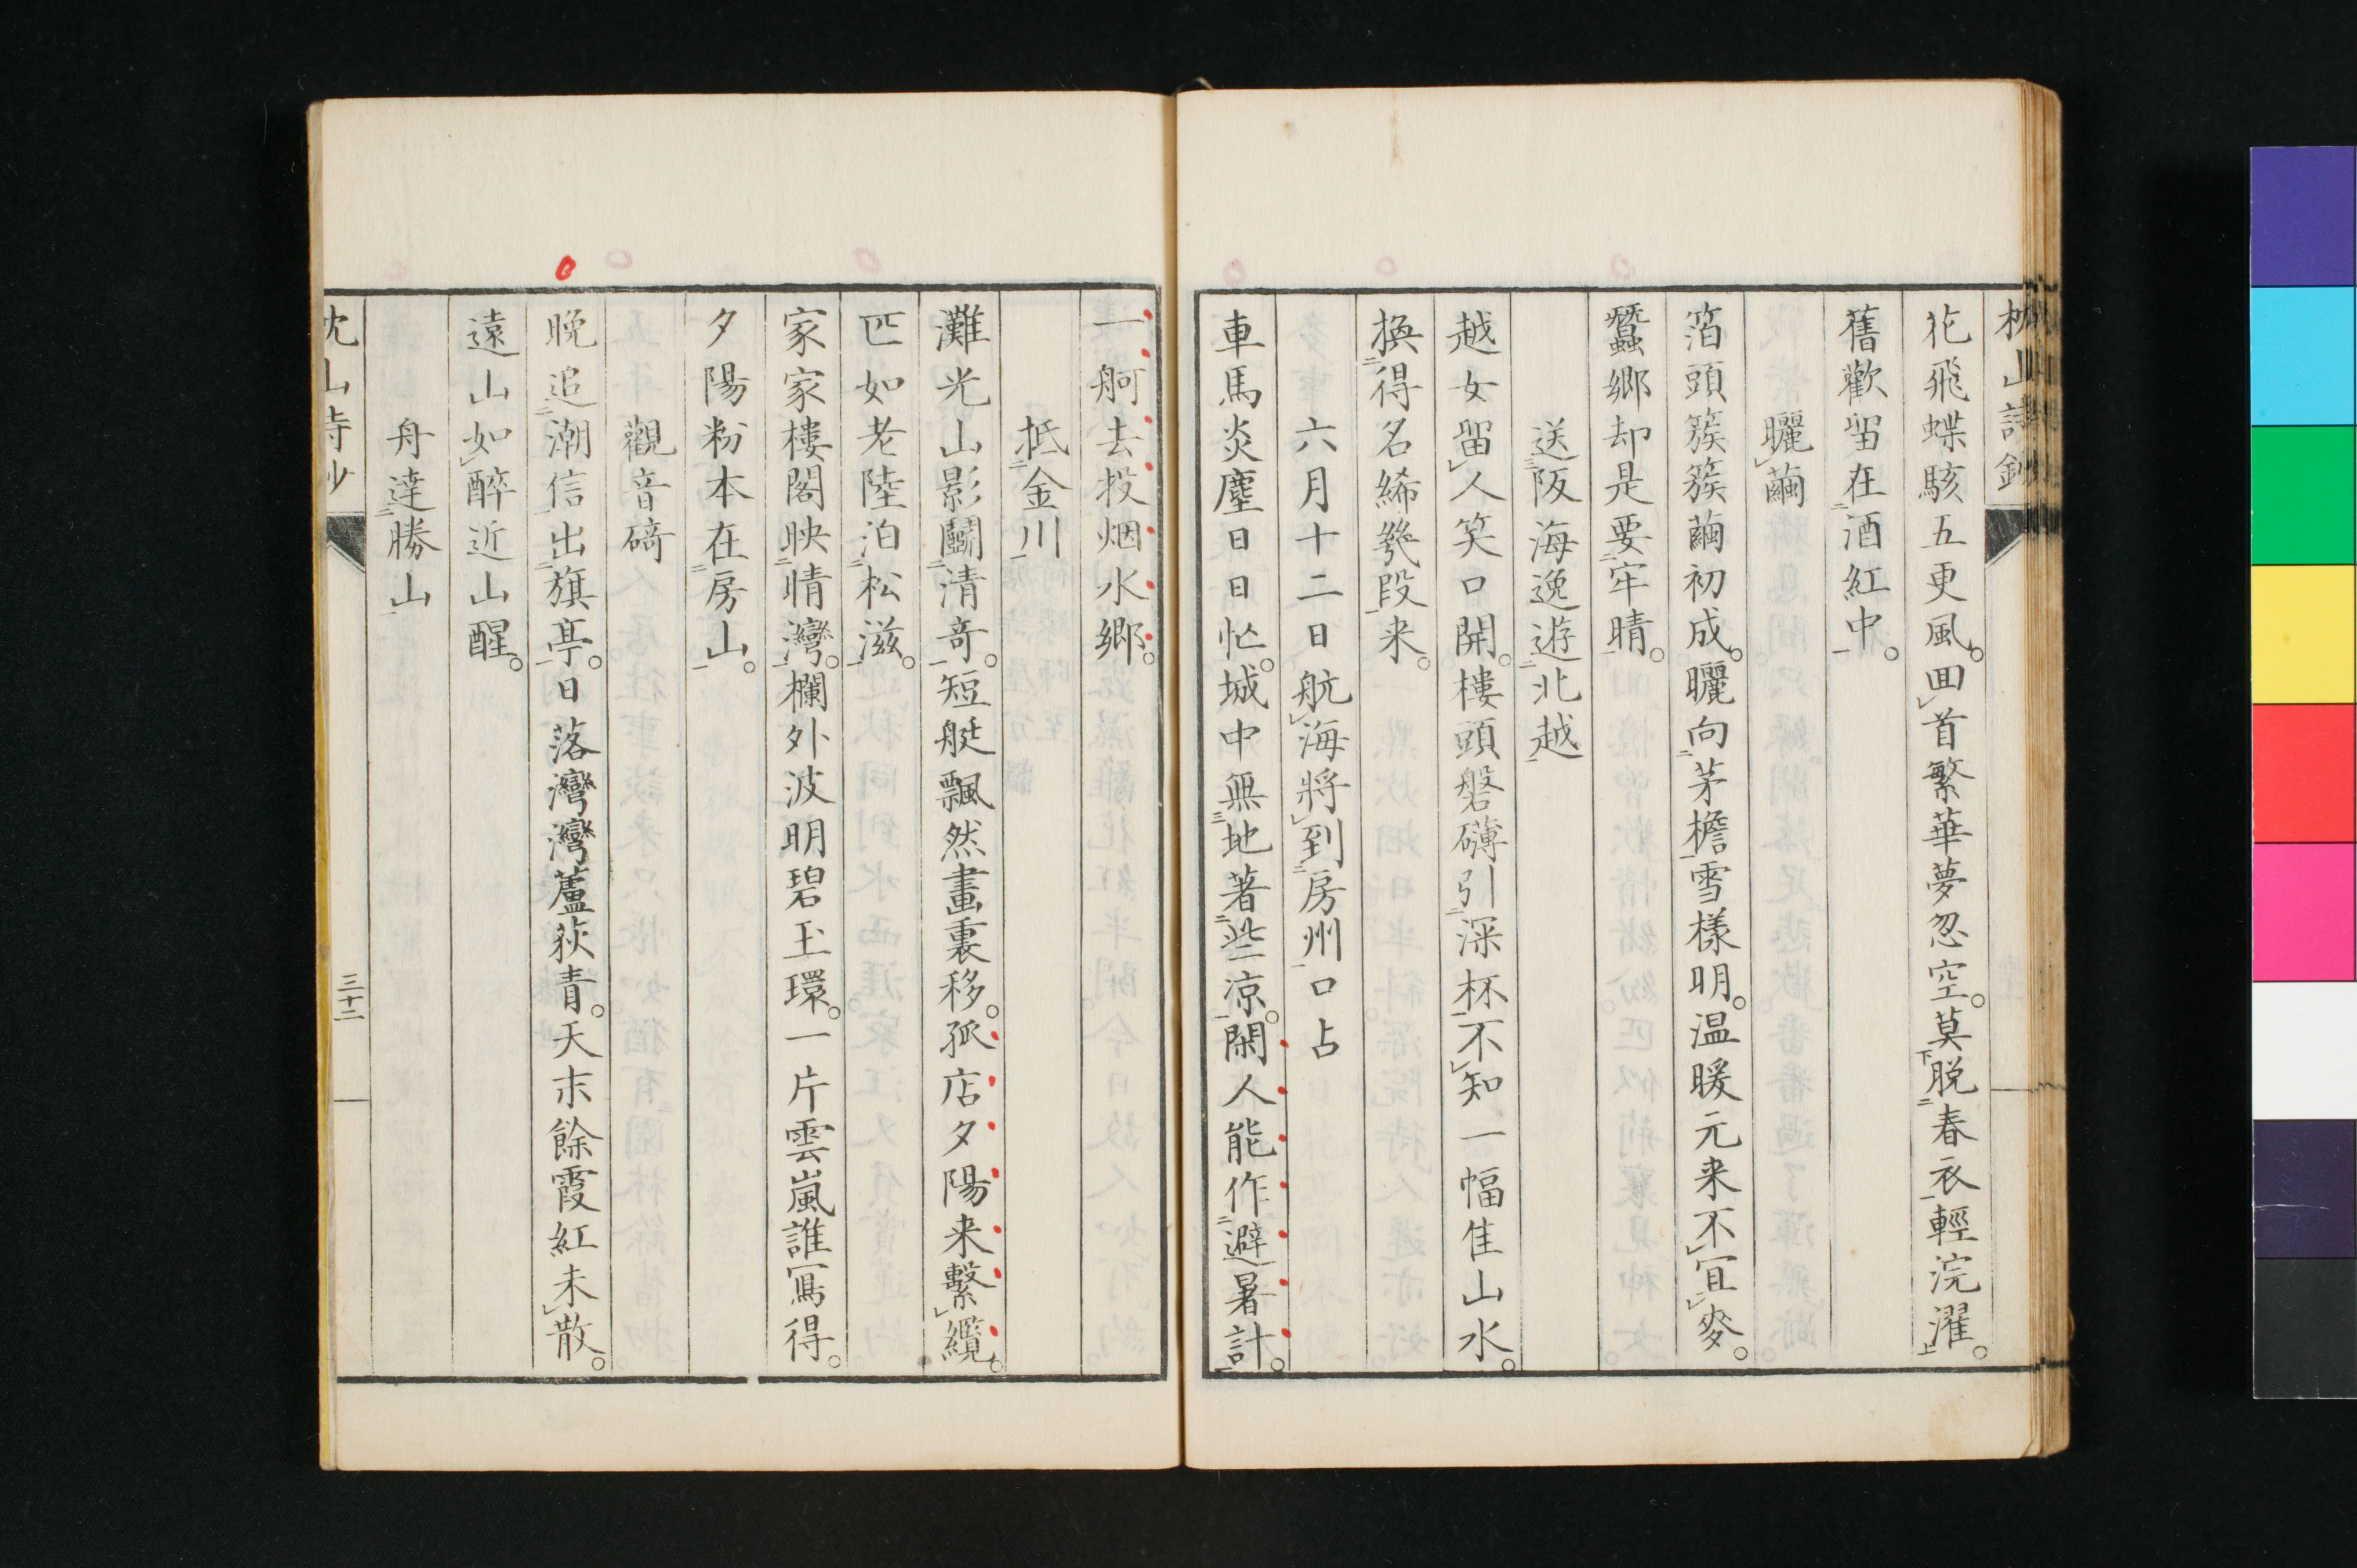 枕山詩鈔
花飛蝶駭五更風。回首繁華夢忽空。莫脱春衣輕浣濯。
舊歡留在酒紅中。
曬繭
箔頭簇簇繭初成。曬向茅檐雪様明。温暖元来不宜麥。
蠶郷却是要牢晴。
送阪海逸遊北越
越女留人笑口開。樓頭磐礴引深杯。不知一幅隹山水。
換得名絺幾段来。
六月十二日航海將到房州口占
車馬炎塵日日忙。城中無地著些涼。閑人能作避暑計。
一舸去投烟水郷。
抵金川
灘光山影鬭清奇。短艇飄然畫裏移。孤店夕陽来繫纜。
匹如老陸泊松滋。
家家樓閣映晴灣。欄外波明碧玉環。一片雲嵐誰寫得。
夕陽粉本在房山。
觀音碕
晩追潮信出旗亭。日落灣灣蘆荻青。天末餘霞紅未散。
遠山如醉近山醒。
舟達勝山
枕山詩鈔
三十二